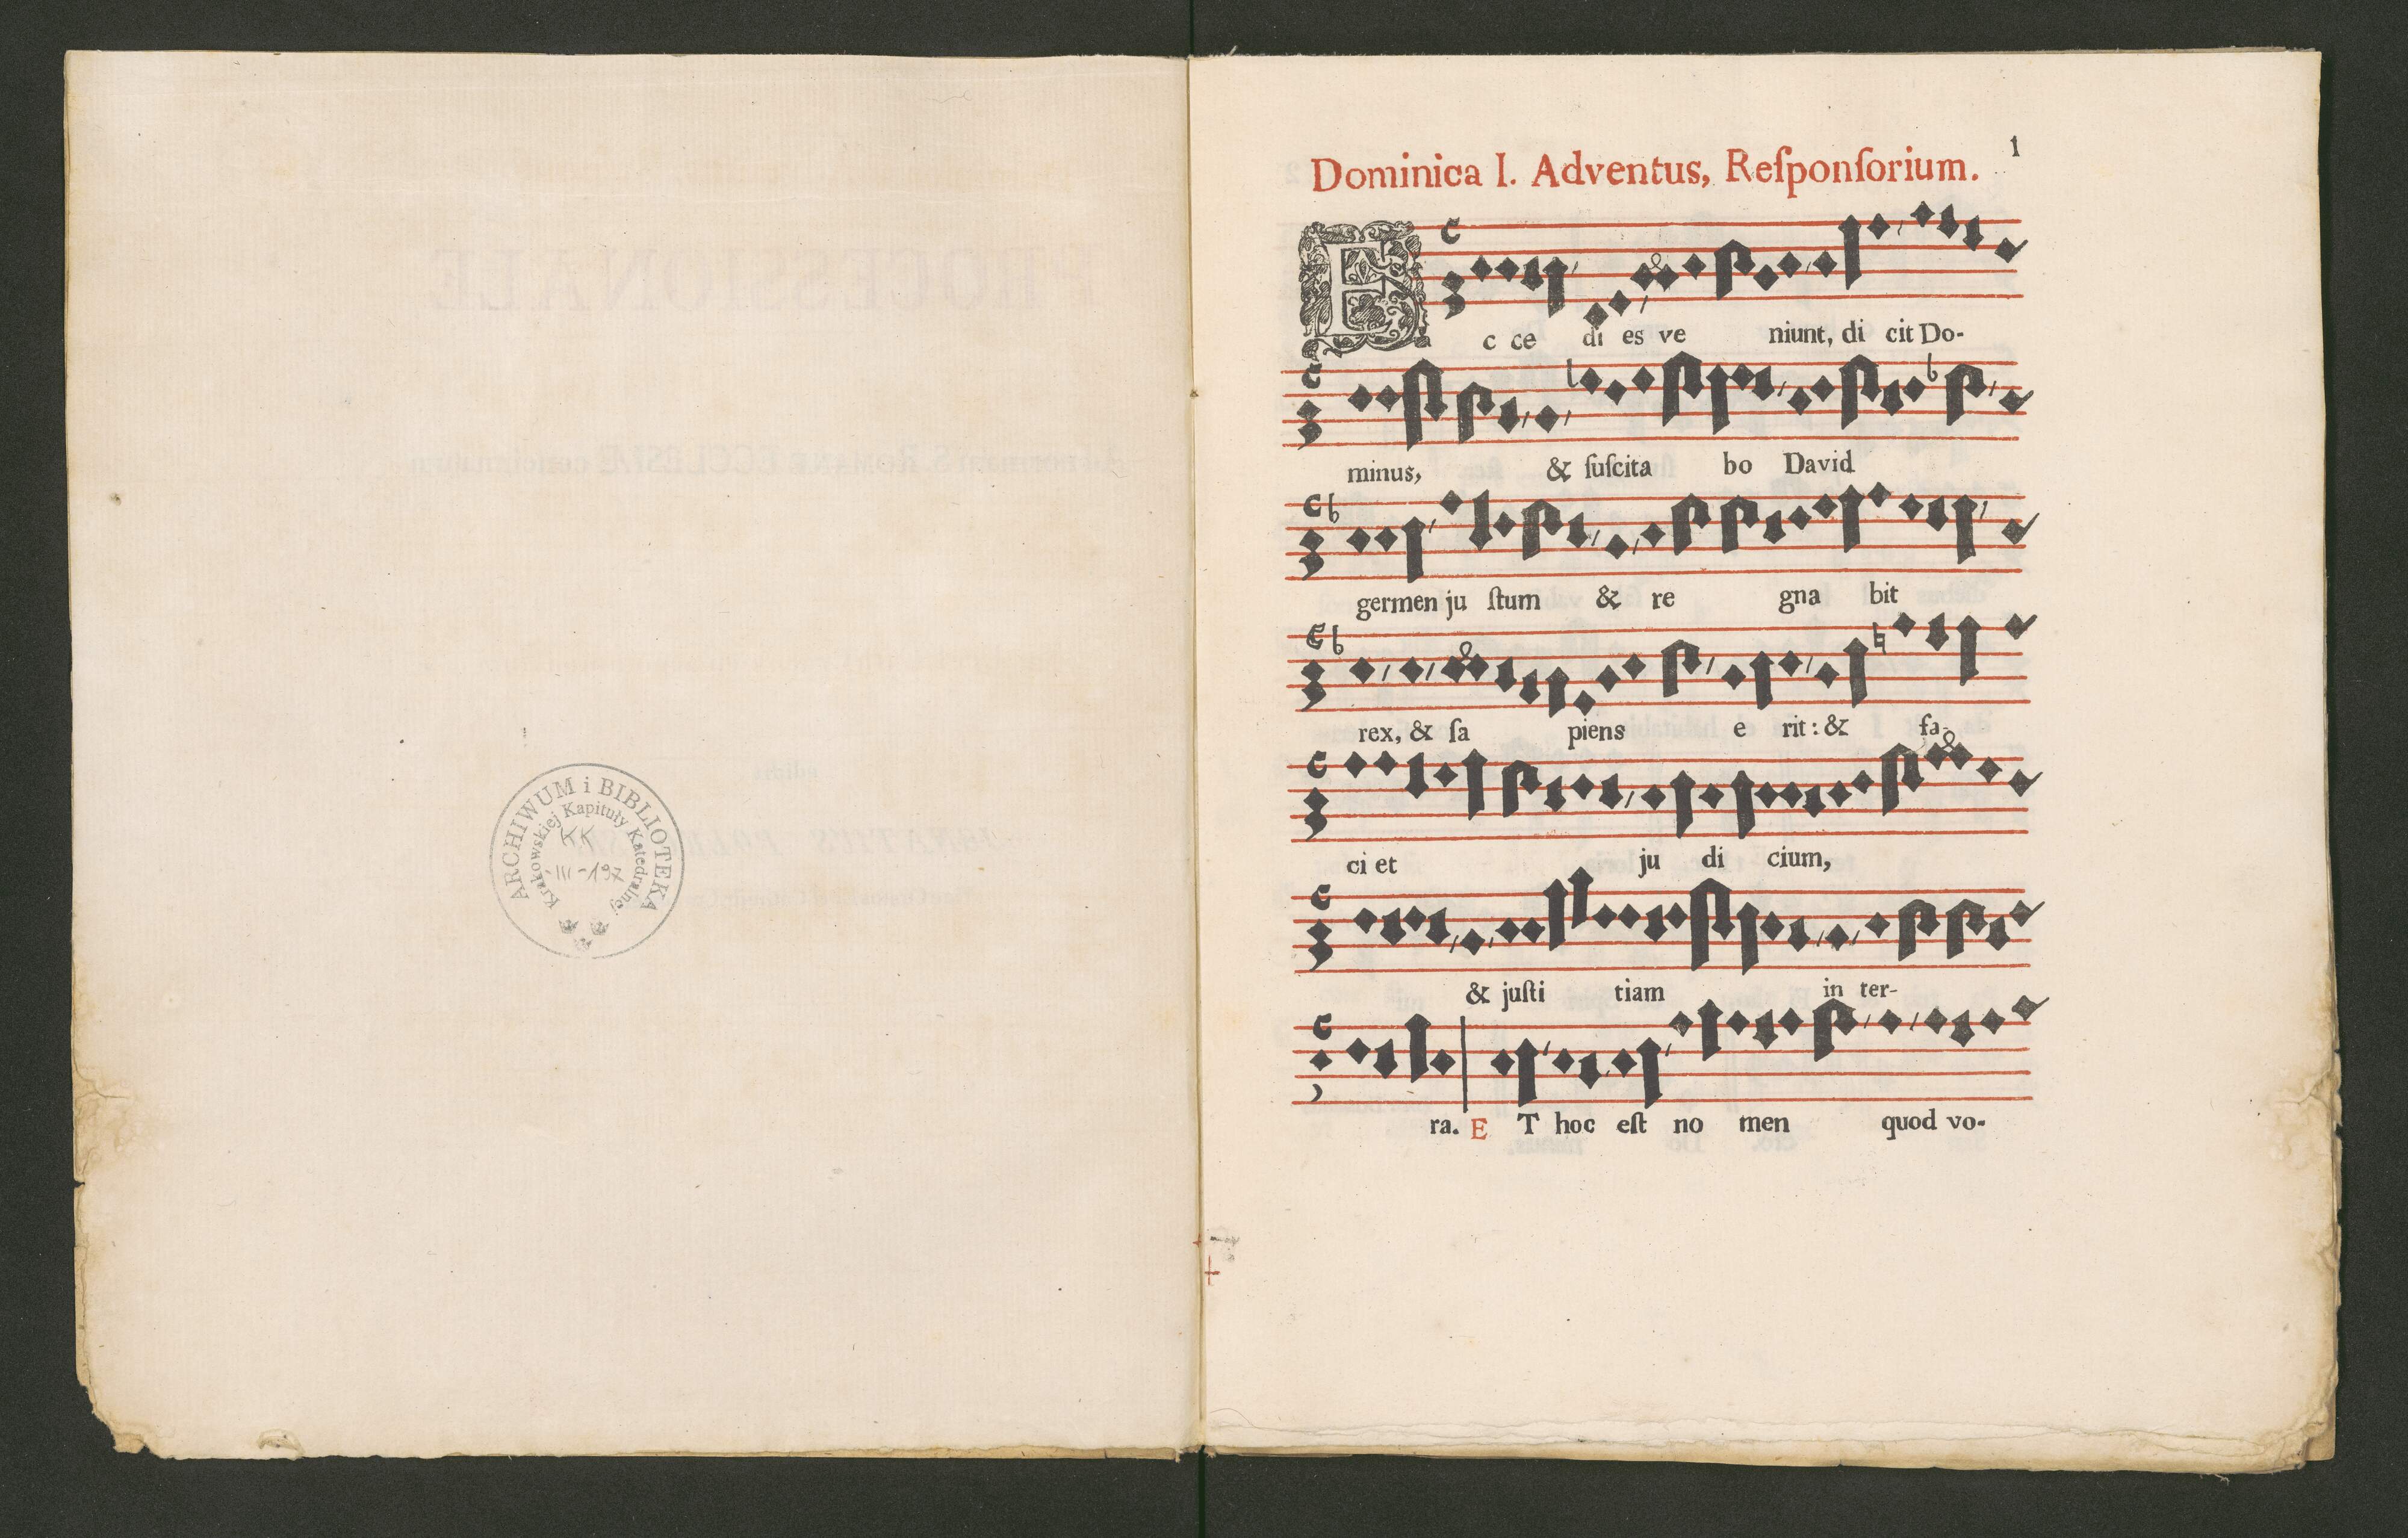 ARCHIWUM i BIBLIOTEKA
Krakowskiej Kapituły Katedralnej
KK
III-197
1
Dominica I. Adventus, Reſponſorium.
E c ce di es ve niunt, di cit Do-
minus, & ſuſcita bo David
germen ju ſtum & re gna bit
rex, & ſa piens e rit: & fa
ci et ju di cium,
& juſti tiam in ter-
ra. E T hoc eſt no men quod vo-